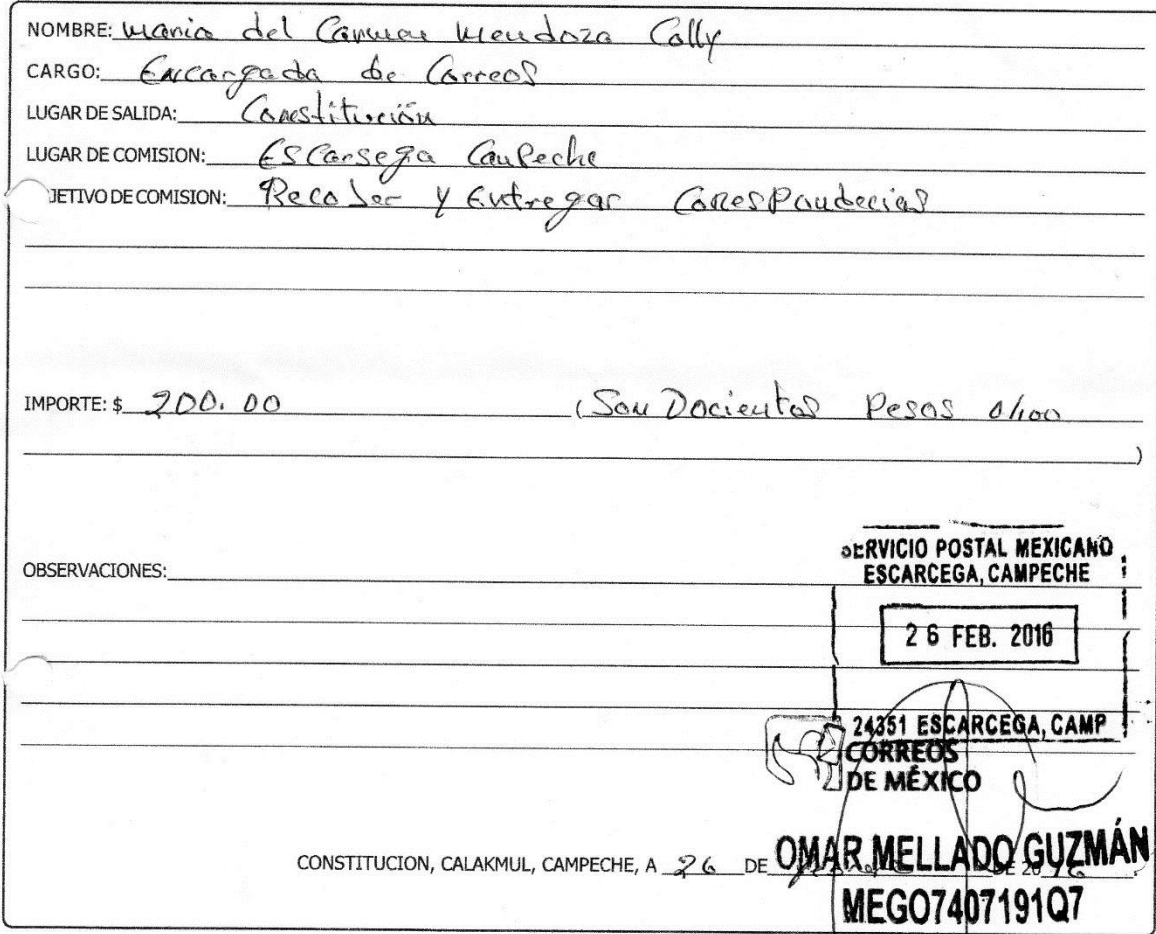 NOMBRE: Maria del Carmen Mendoza Colly
CARGO: Encargada de Correos
LUGAR DE SALIDA: Constitución
LUGAR DE COMISION: Escarsega Campeche
JETIVO DE COMISION: Recojer y Entregar Correspondecias
IMPORTE: $ 200.00 (Son Docientos Pesos 0/100
)
OBSERVACIONES:
SERVICIO POSTAL MEXICANO
ESCARCEGA, CAMPECHE
26 FEB. 2016
24351 ESCARCEGA, CAMP
CORREOS
DE MÉXICO
CONSTITUCION, CALAKMUL, CAMPECHE, A 26 DE DE 2016
OMAR MELLADO GUZMÁN
MEGO7407191Q7